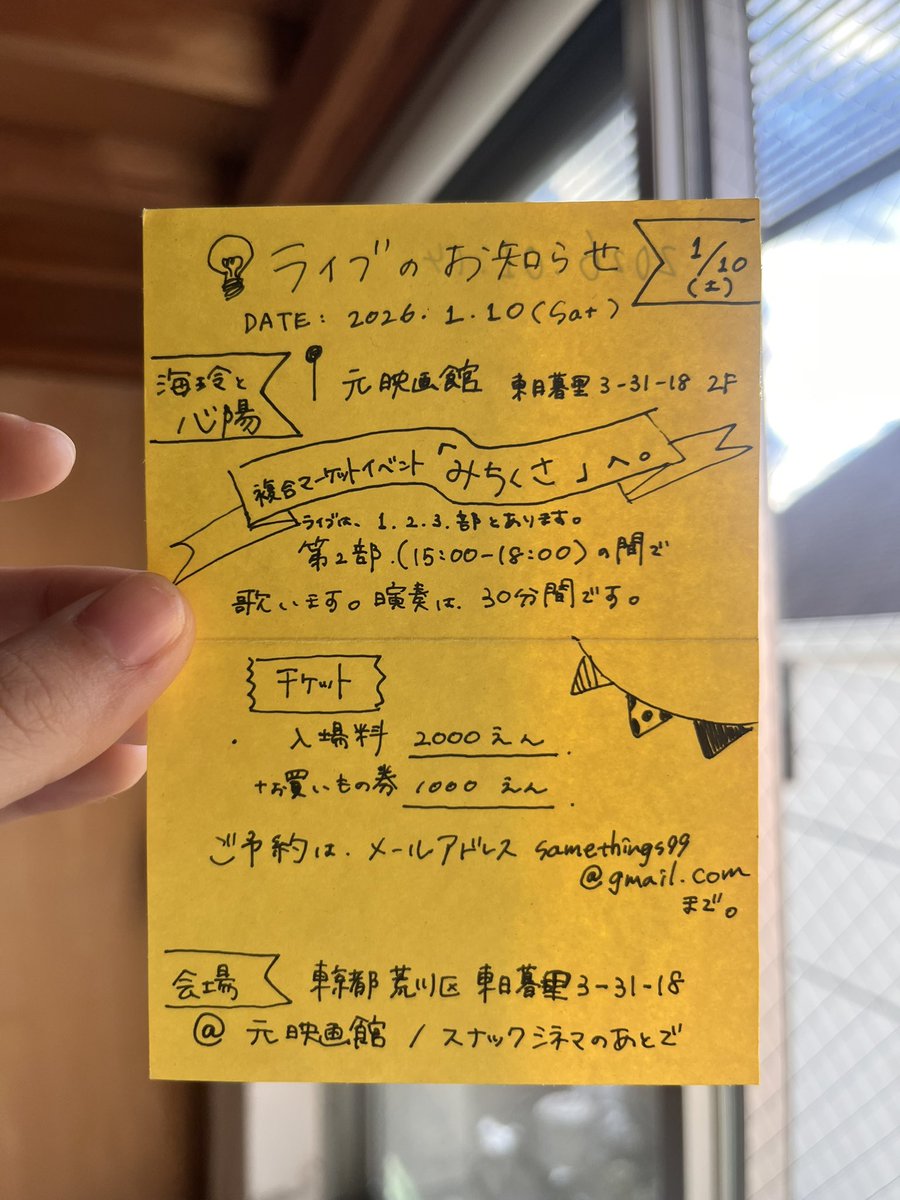 ライブのお知らせ
1/10
(土)
DATE: 2026.1.10(Sat)
海玲と
心陽
元映画館 東日暮里3-31-18 2F
複合マーケットイベント「みちくさ」へ。
ライブは、1.2.3.部とあります。
第2部.(15:00-18:00)の間で
歌います。演奏は、30分間です。
チケット
入場料 2000えん.
+お買いもの券 1000えん.
ご予約は、メールアドレス samethings99
@gmail.com
まで。
会場
東京都荒川区東日暮里3-31-18
@元映画館/スナックシネマのあとで